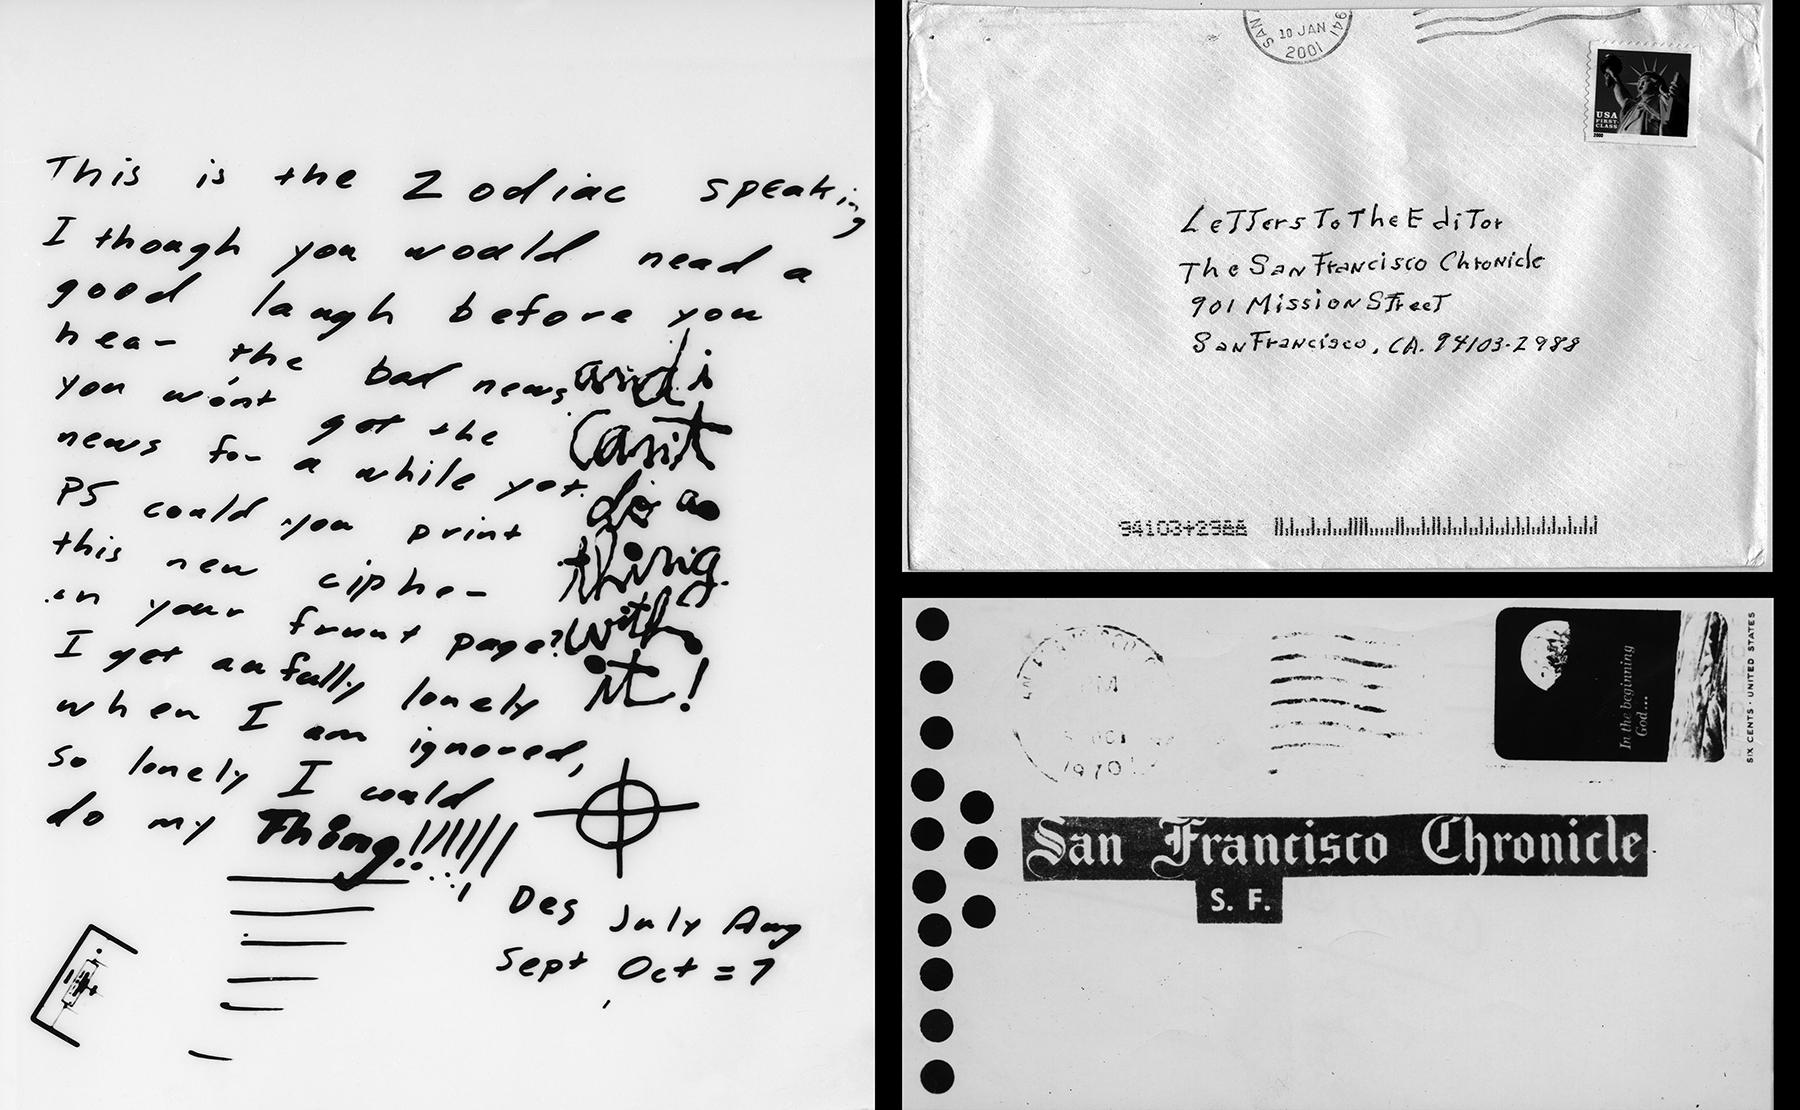 This is the Zodiac speaking
I though you would nead a
good laugh before you
hear the bad news
you won't get the
news for a while yet.
PS could you print
this new cipher
in your frunt page?
I get aufully lonely
when I am ignored,
so lonely I could
do my Thing!!!!!!
and i
can't
do a
thing
with
it!
Des July Aug
Sept Oct = 7
SAN 941
10 JAN
2001
USA
FIRST-CLASS
2000
LeTTers To The EdiTor
The San Francisco Chronicle
901 Mission STreeT
San Francisco, CA. 94103-2988
94103+2988
1970
In the beginning
God...
SIX CENTS · UNITED STATES
San Francisco Chronicle
S. F.